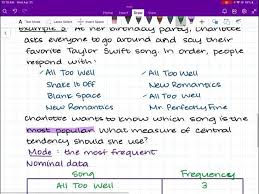 Example 3 At her birthday party, Charlotte
asks everyone to go around and say their
favorite Taylor Swift song. In order, people
respond with:
✓ All Too Well ✓ All Too Well
Shake It Off New Romantics
Blank Space ✓ All Too Well
New Romantics Mr. Perfectly Fine
Charlotte wants to know which song is the
most popular. What measure of central
tendency should she use?
Mode: the most frequent
Nominal data
Song Frequency
All Too Well 3